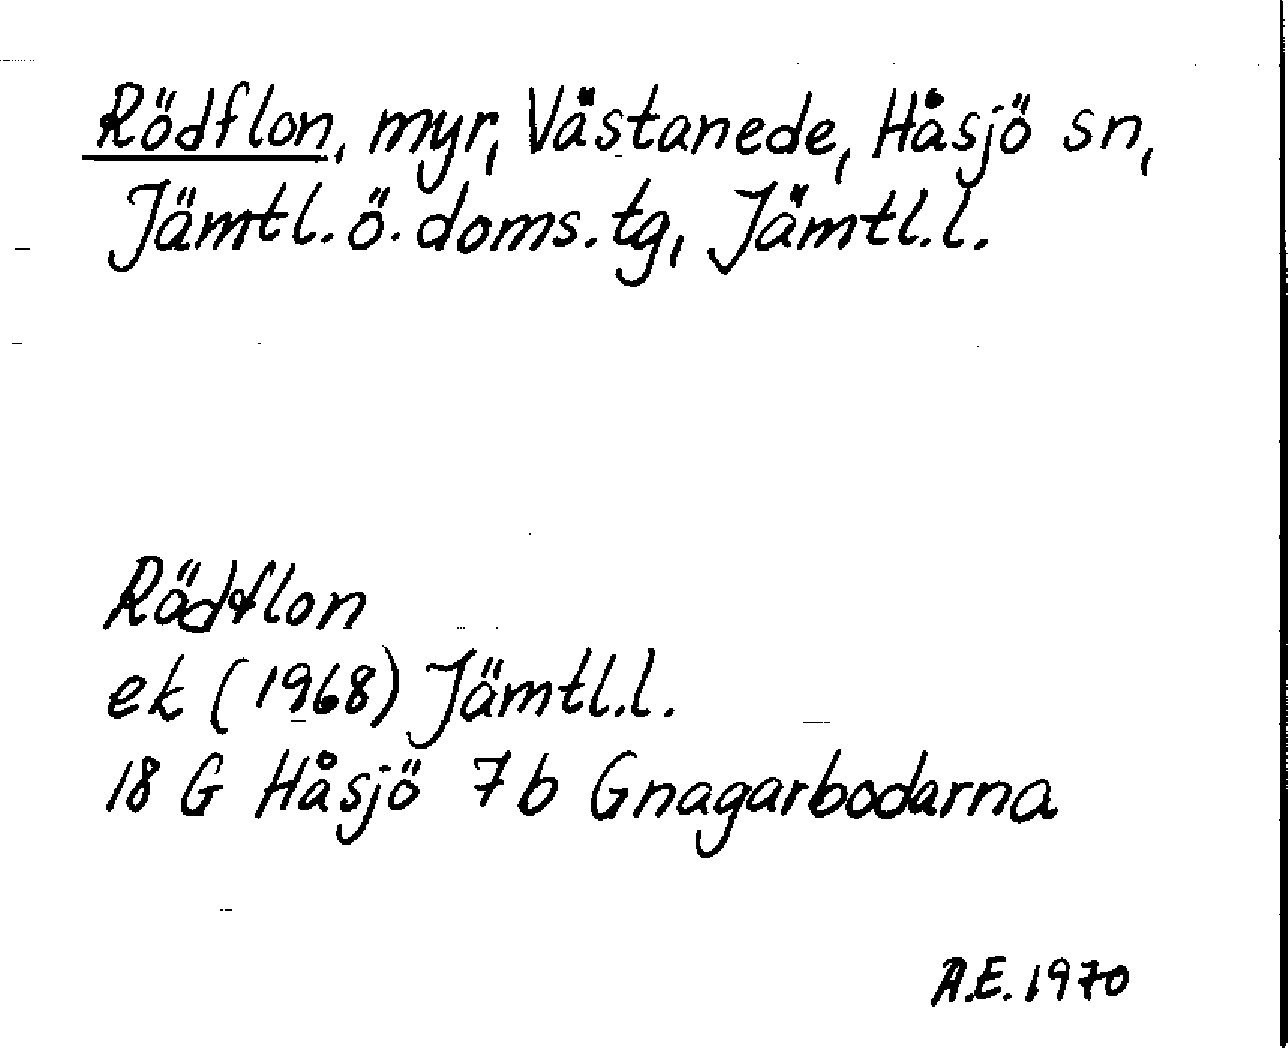 Rödflon, myr, Västanede, Håsjö sn,
Jämtl. ö. doms. tg, Jämtl. l.
Rödflon
ek (1968) Jämtl. l.
18 G Håsjö 7 b Gnagarbodarna
A.E. 1970